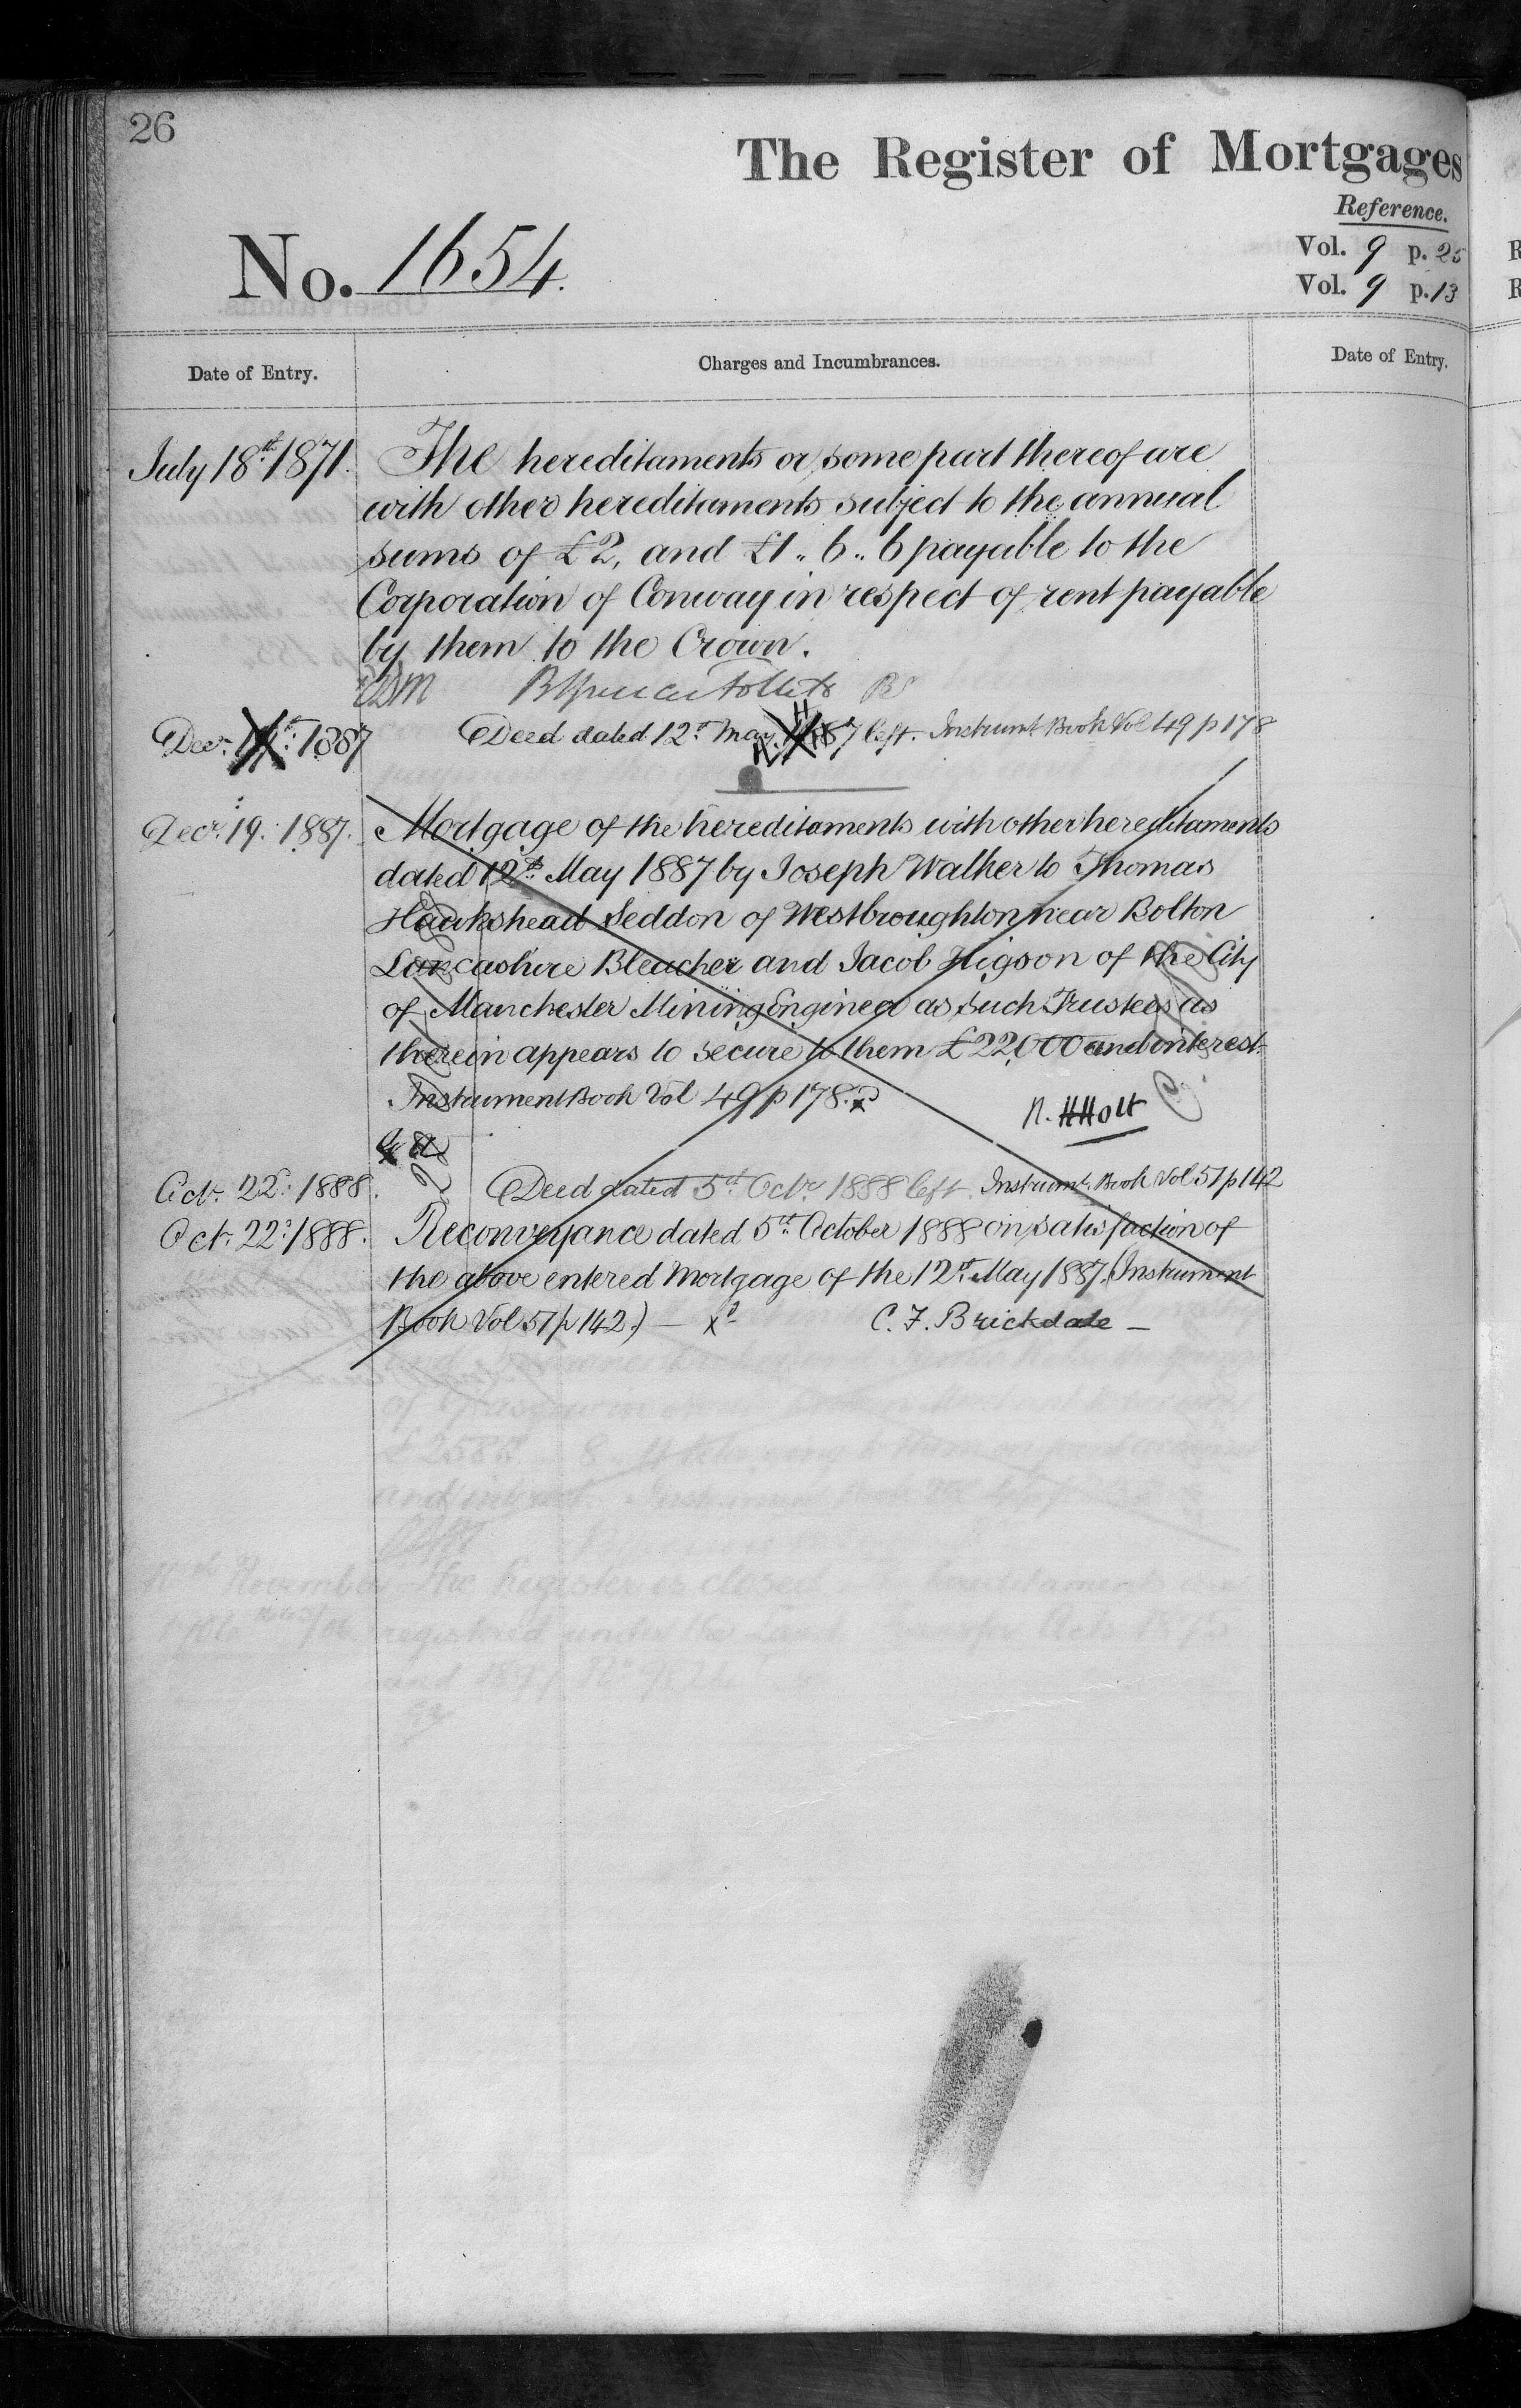 26
The Register of Mortgages
Reference.
Vol. 9 p. 25
Vol. 9 p. 13
No. 1654.
Date of Entry.
Charges and Incumbrances.
Date of Entry.
July 18th 1871. The hereditaments or some part thereof are
with other hereditaments subject to the annual
sums of £2, and £1 .. 6 .. 6 payable to the
Corporation of Conway in respect of rent payable
by them to the Crown.
Decr. 1887 Deed dated 12th May 1887 left. Instrumt. Book Vol 49 p 178
Decr. 19. 1887. Mortgage of the hereditaments with other hereditaments
dated 12th May 1887 by Joseph Walker to Thomas
Hawkshead Seddon of Westbroughton near Bolton
Lancashire Bleacher and Jacob Higson of the City
of Manchester Mining Engineer as such Trustees as
therein appears to secure to them £22,000 and interest.
Instrument Book Vol 49 p 178.
R. H Holt
Octr. 22d 1888. Deed dated 5th Octr. 1888 left. Instrumt. Book Vol 51 p 142
Oct. 22d 1888. Reconveyance dated 5th October 1888 on satisfaction of
the above entered Mortgage of the 12th May 1887. (Instrument
Book Vol 51 p 142.) — x C. F. Brickdale —